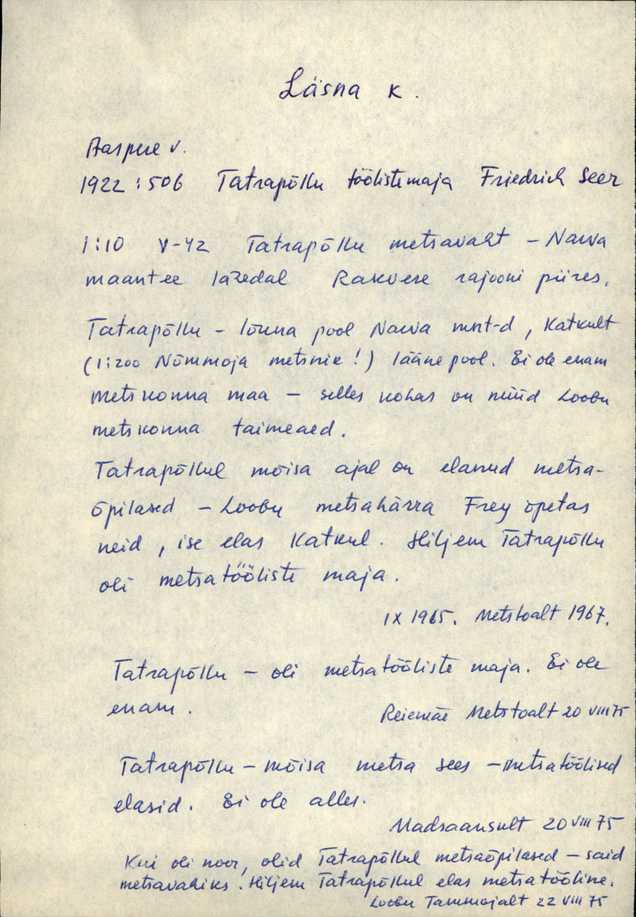 Läsna k.
Aaspere v.
1922:506 Tatrapõllu töölistemaja Friedrich Seer
1:10 V-42 Tatrapõllu metsavaht – Narva
maantee lähedal Rakvere rajooni piires.
Tatrapõllu – lõuna pool Narva mnt-d, Katkult
(1:200 Nõmmoja metsnik!) lääne pool. Ei ole enam
metskonna maa – selles kohas on nüüd Loobu
metskonna taimeaed.
Tatrapõllul mõisa ajal on elanud metsa-
õpilased – Loobu metsahärra Frey õpetas
neid, ise elas Katkul. Hiljem Tatrapõllu
oli metsatööliste maja.
IX 1965. Metstoalt 1967.
Tatrapõllu – oli metsatööliste maja. Ei ole
enam. Reiemäe Metstoalt 20 VIII 75
Tatrapõllu – mõisa metsa sees – metsatöölised
elasid. Ei ole alles.
Madsaansult 20 VIII 75
Kui oli noor, olid Tatrapõllul metsaõpilased – said
metsavahiks. Hiljem Tatrapõllul elas metsatööline.
Loobu Tammojalt 22 VIII 75